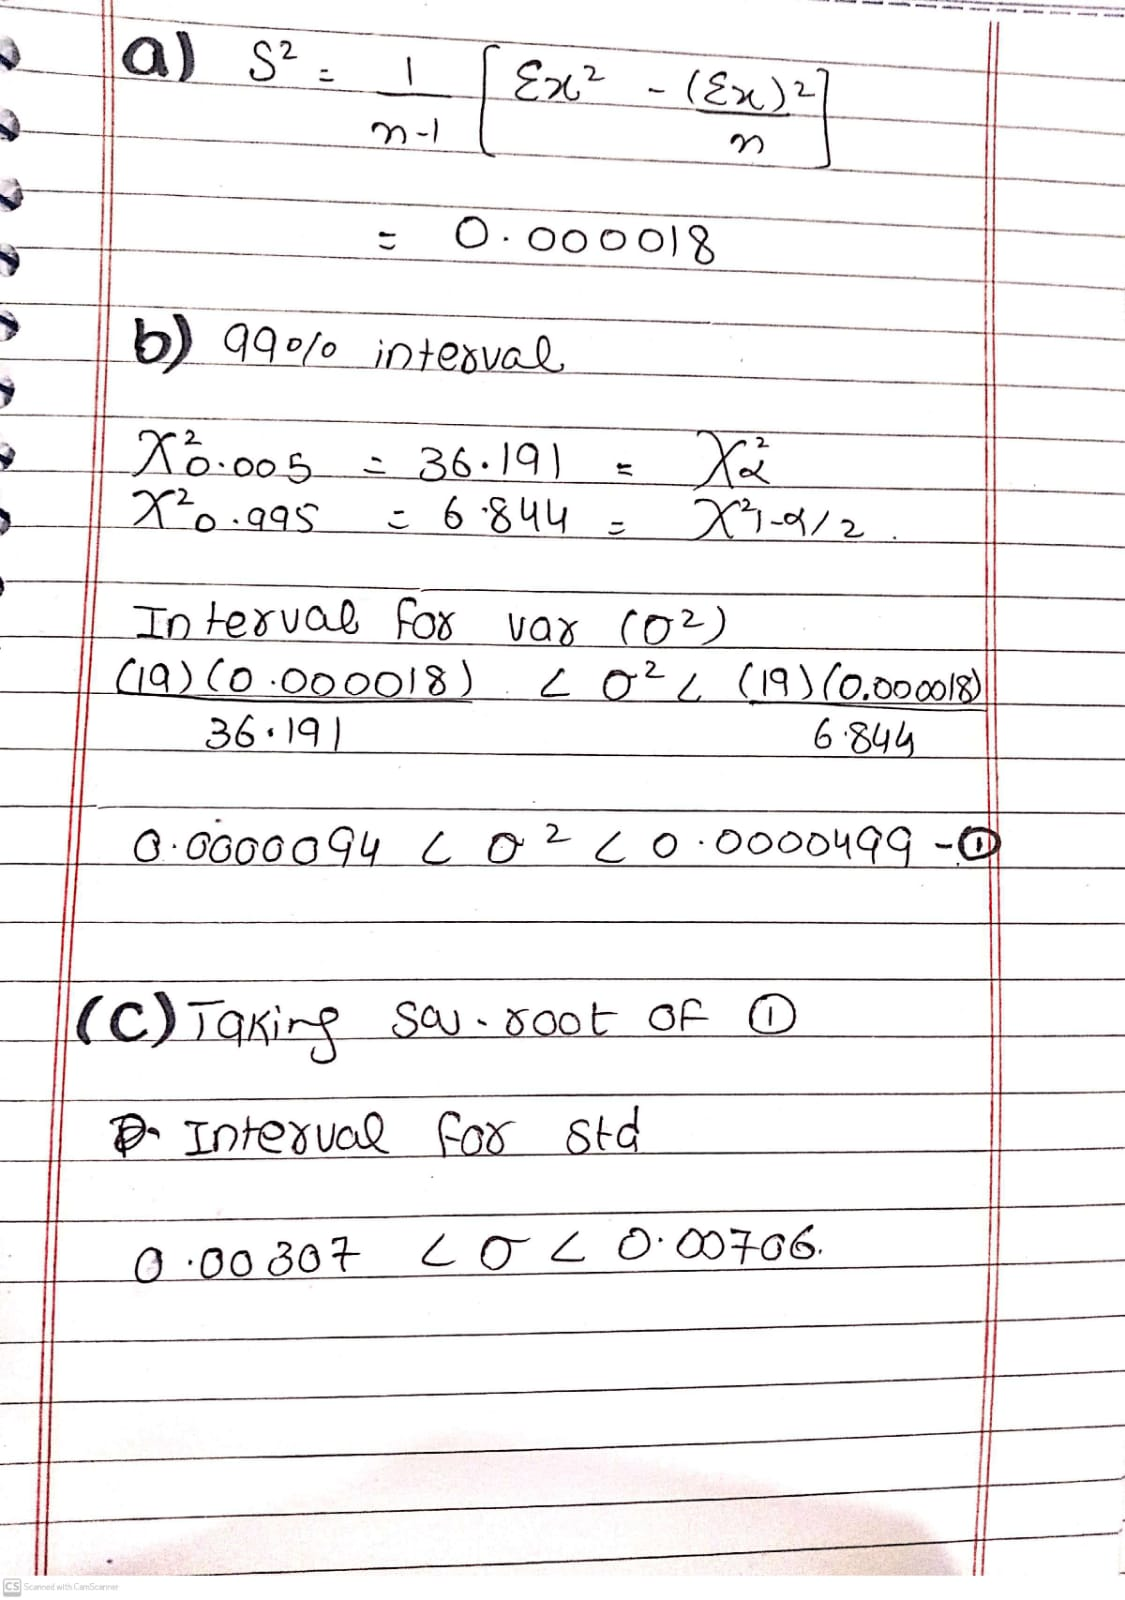 a) S² = 1/n-1 [Σx² - (Σx)²/n]
= 0.000018
b) 99% interval
X²0.005 = 36.191 = X²α
X²0.995 = 6.844 = X²1-α/2.
Interval for var (σ²)
(19)(0.000018)/36.191 < σ² < (19)(0.000018)/6.844
0.0000094 < σ² < 0.0000499 - ①
(C) Taking sqr. root of ①
Interval for std
0.00307 < σ < 0.00706.
CS Scanned with CamScanner